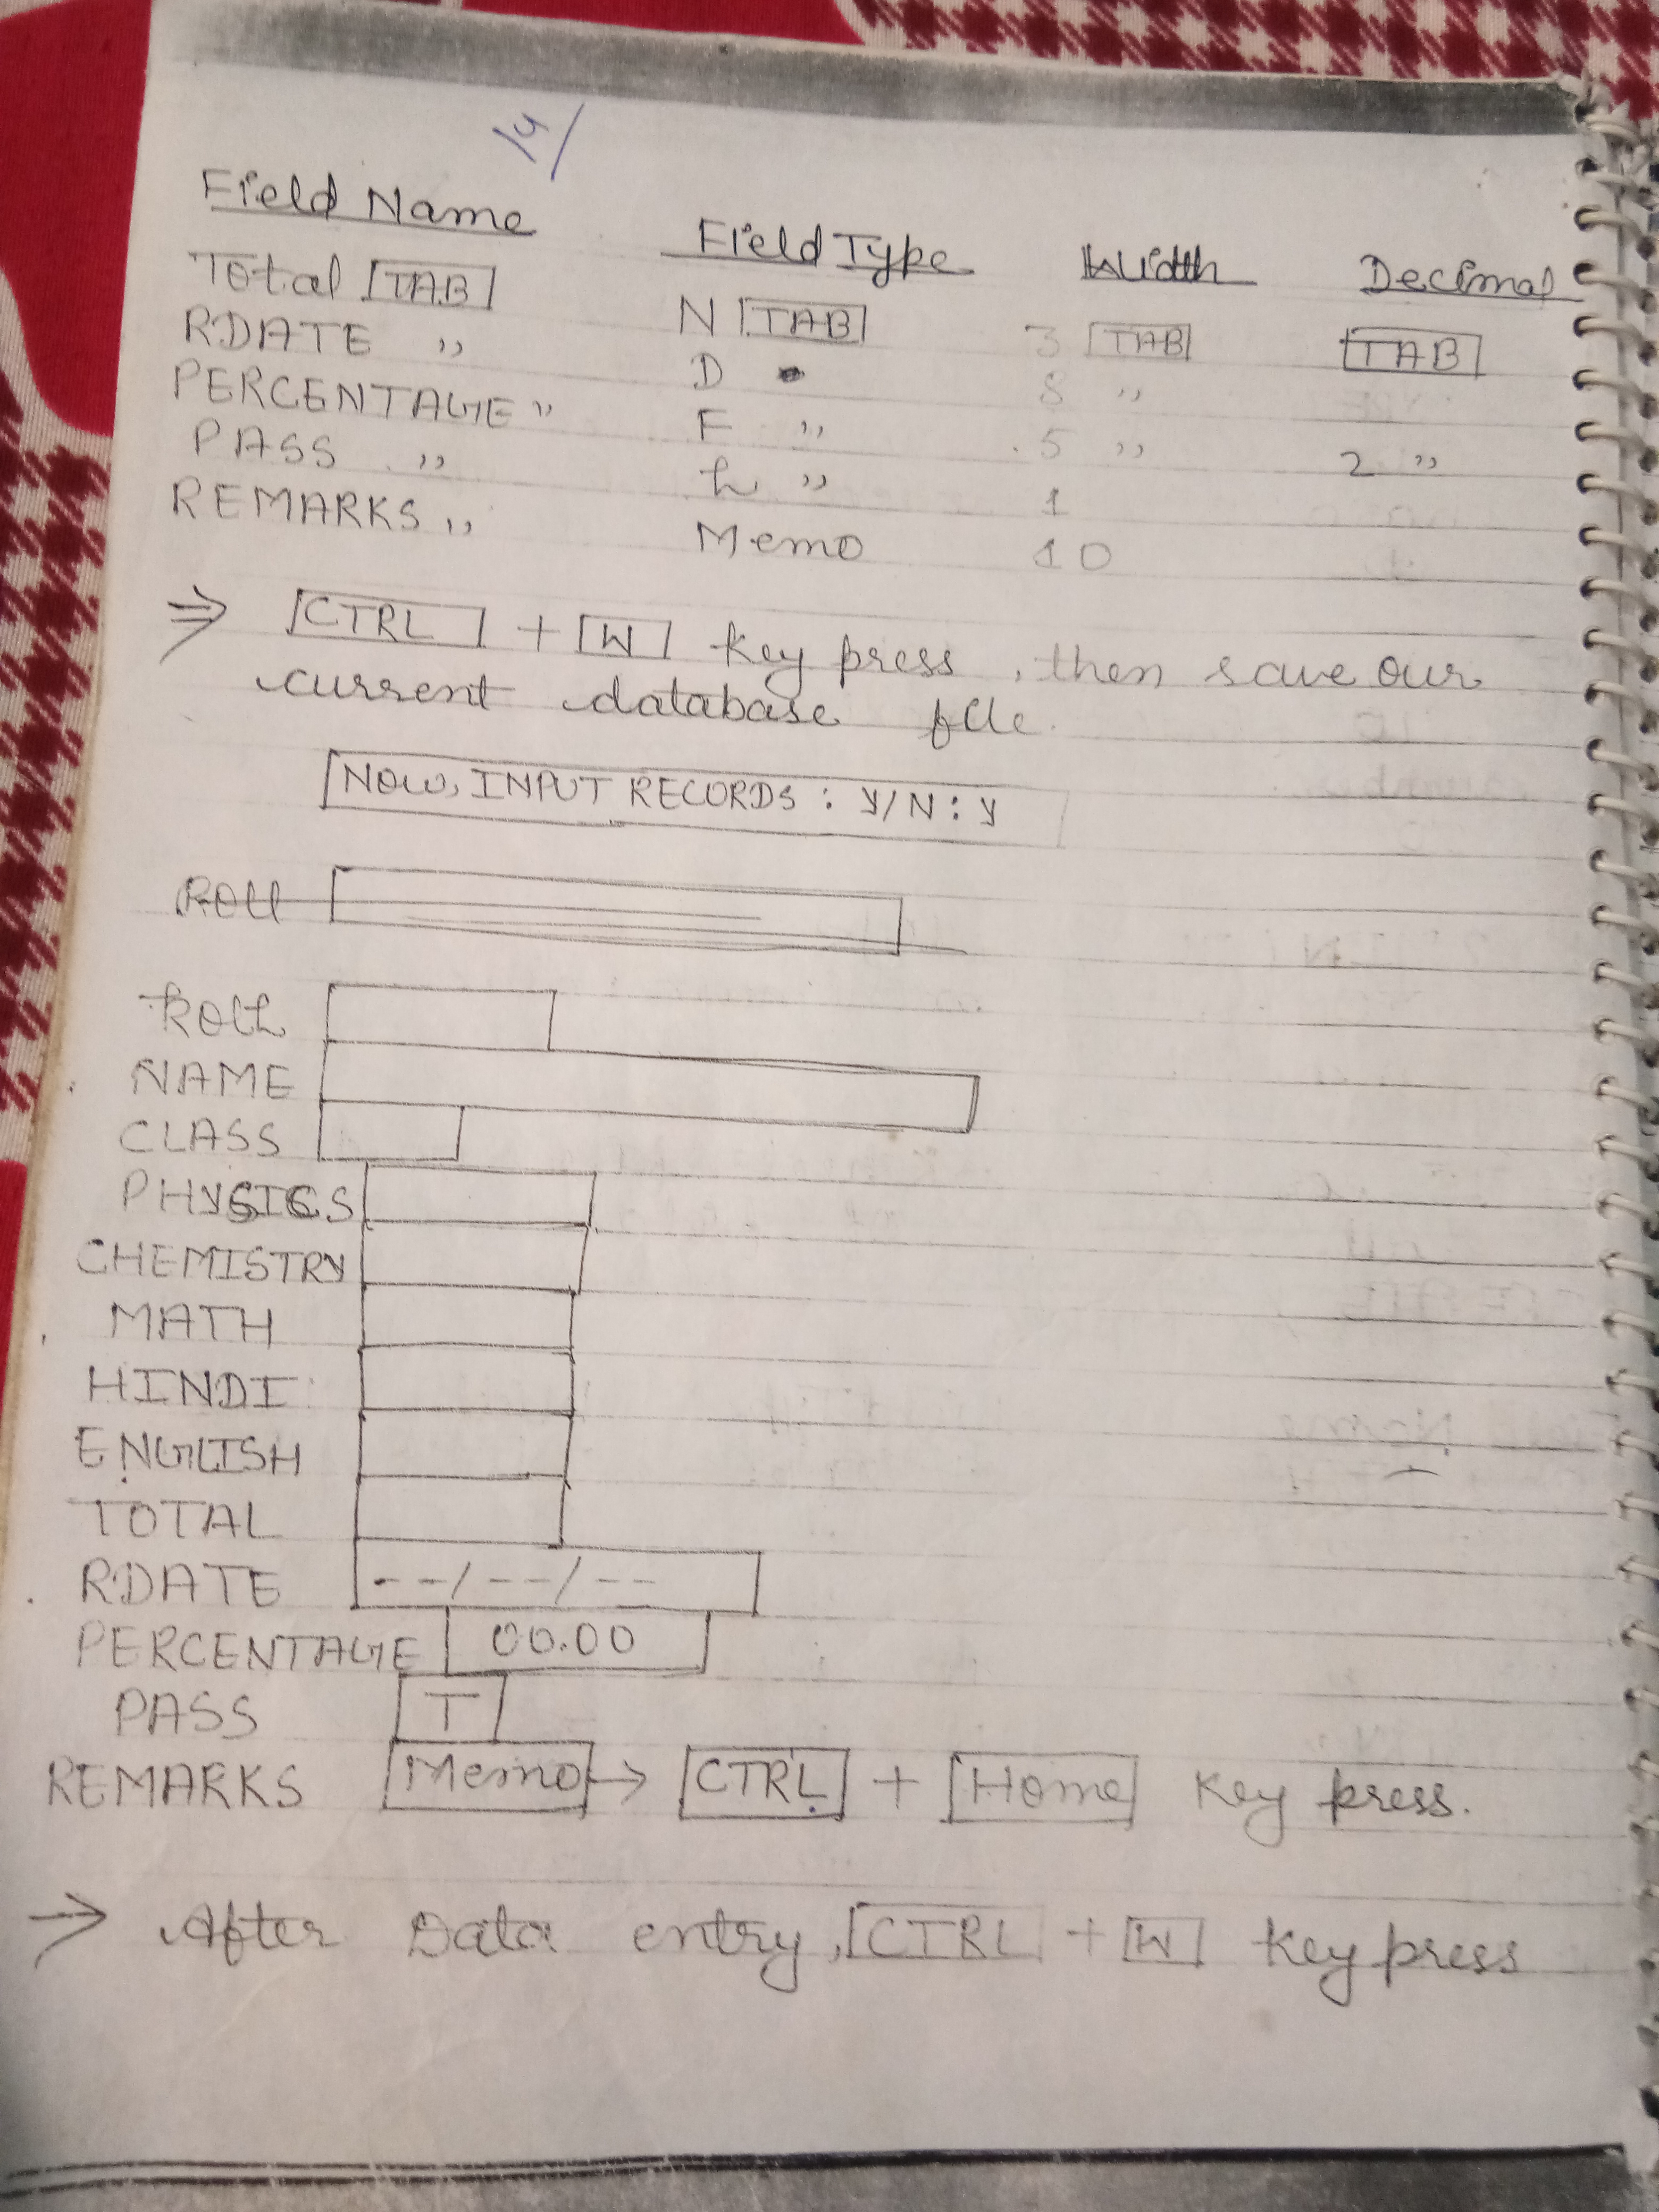 14/
Field Name Field Type Width Decimal
Total TAB N TAB 3 TAB TAB
RDATE ,, D 8 ,,
PERCENTAGE ,, F ,, 5 ,, 2 ,,
PASS ,, L ,, 1
REMARKS ,, Memo 10
⇒ CTRL + W key press, then save our
current database file.
NOW, INPUT RECORDS : Y/N : Y
Roll
Roll
NAME
CLASS
PHYSICS
CHEMISTRY
MATH
HINDI
ENGLISH
TOTAL
RDATE --/--/--
PERCENTAGE 00.00
PASS T
REMARKS Memo → CTRL + Home key press.
→ After Data entry, CTRL + W key press